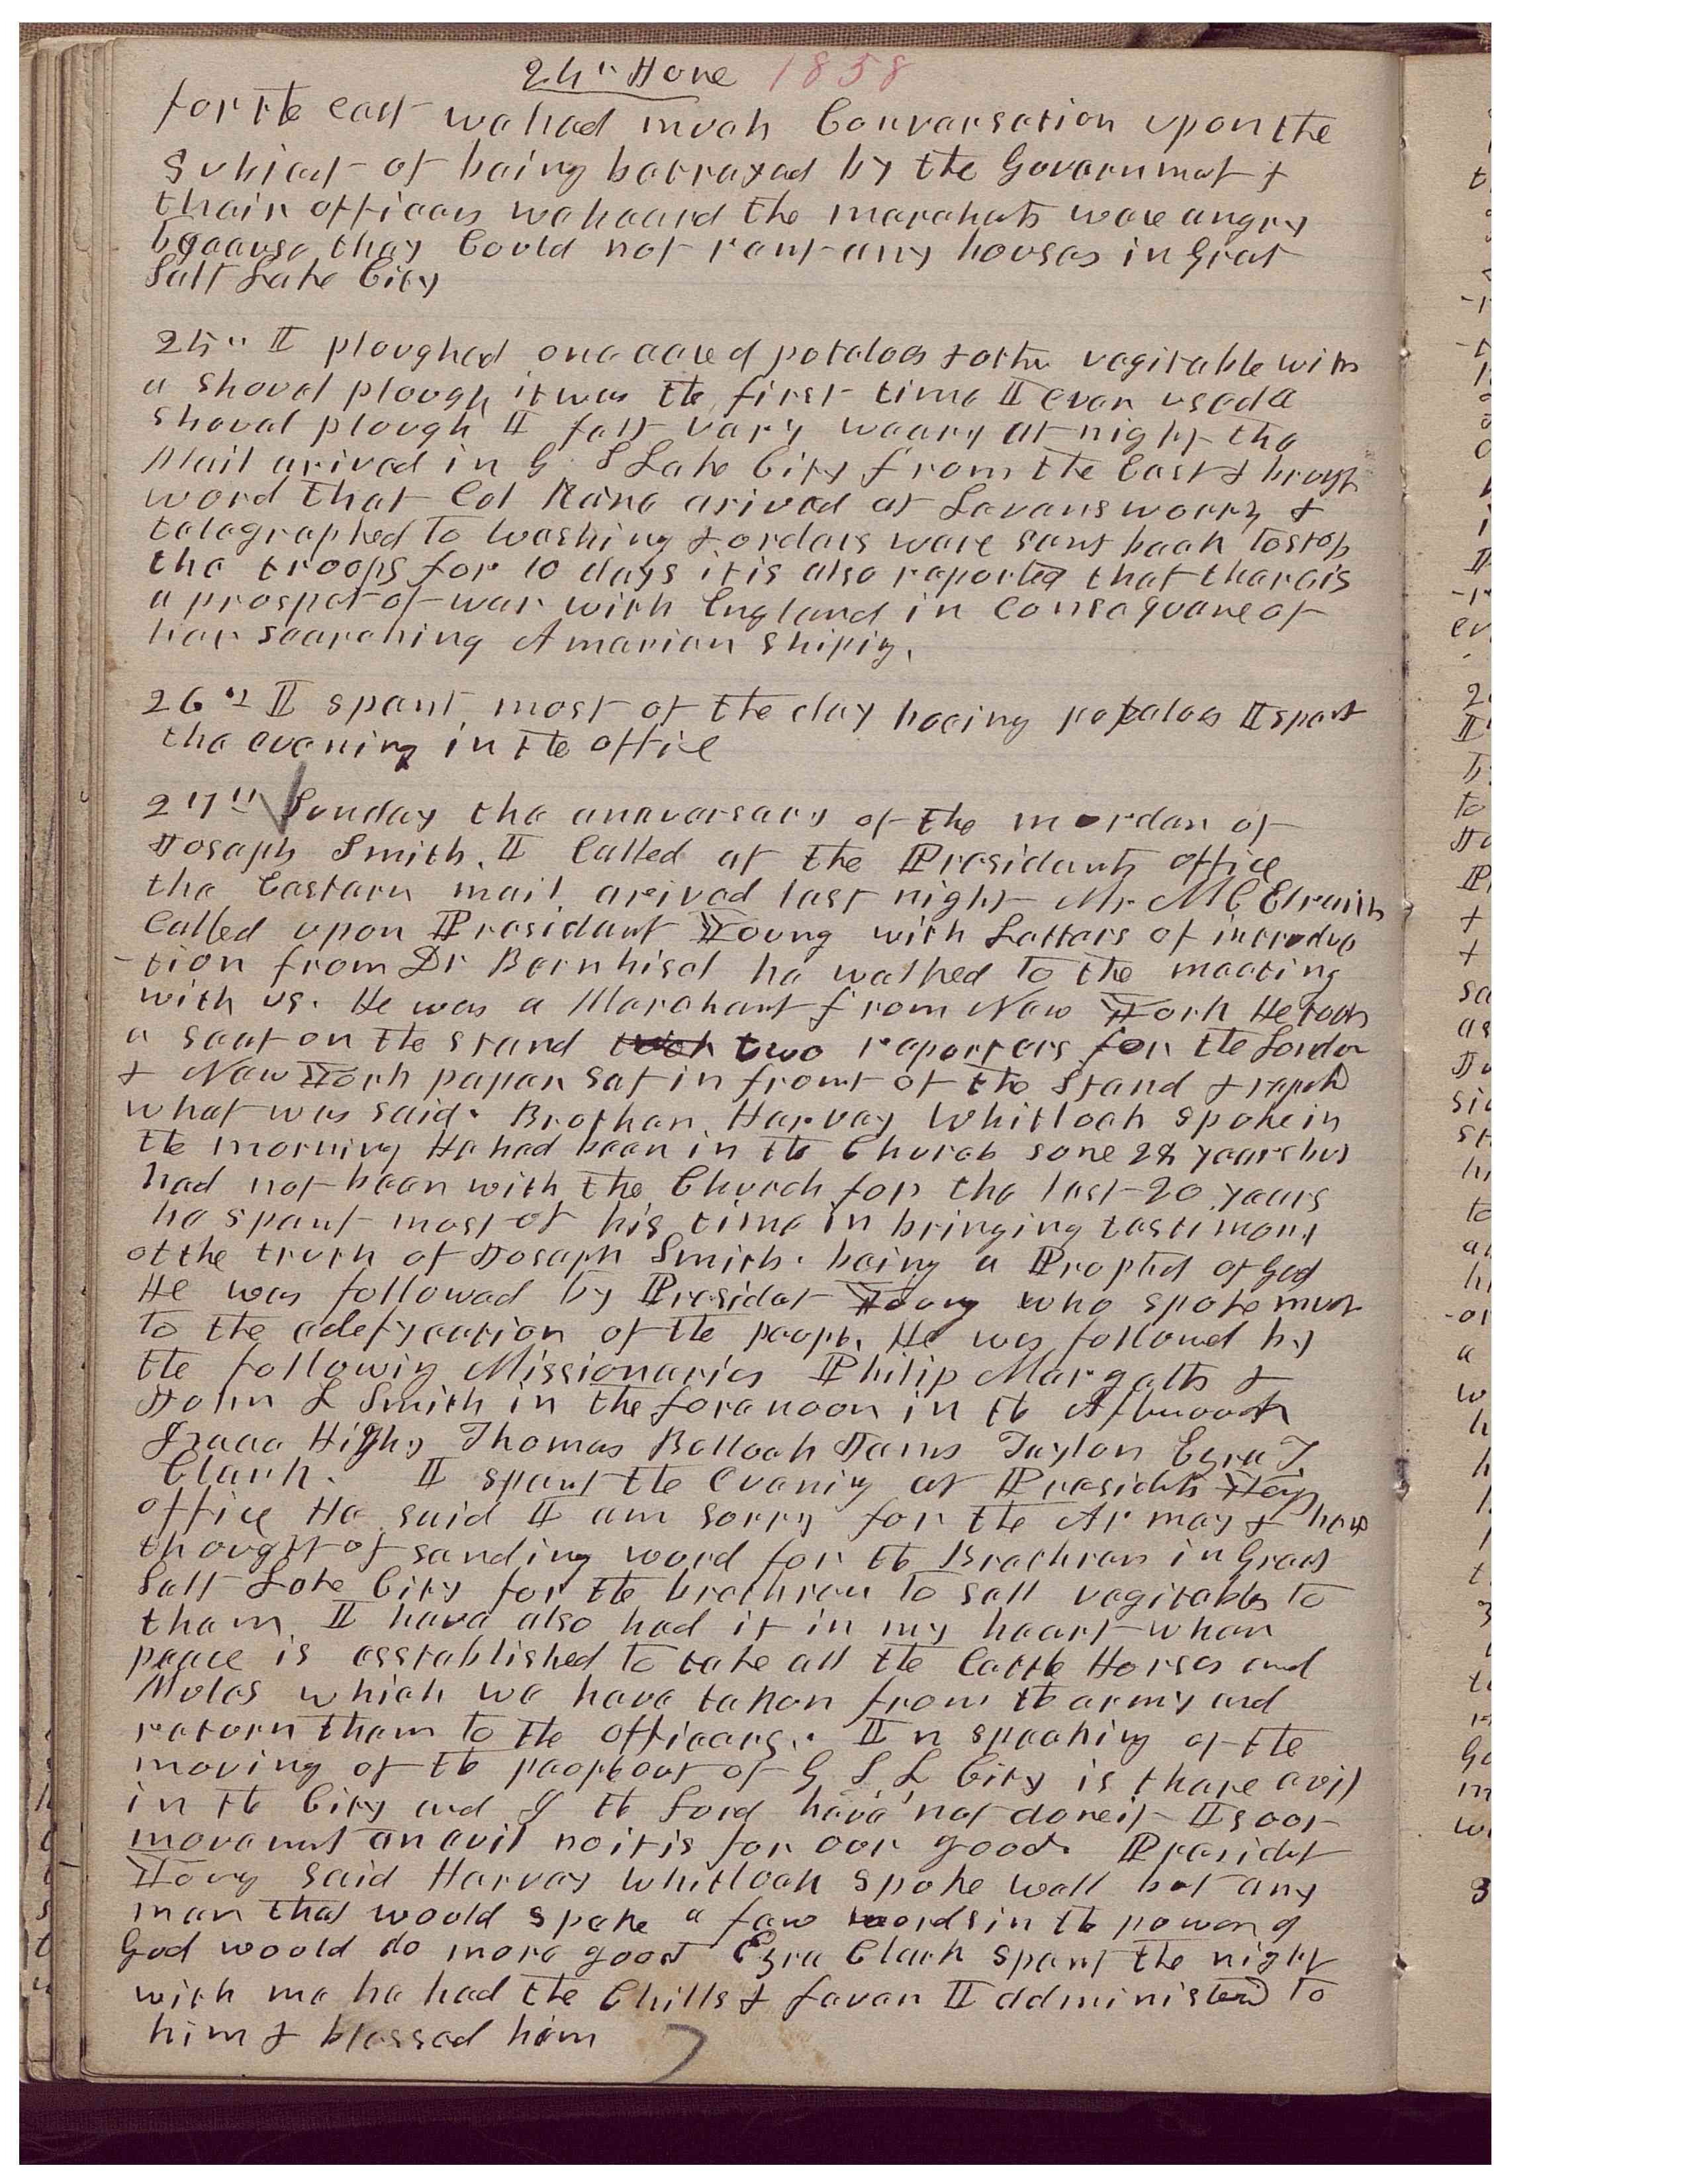 24th June 1858
for the east we had much Conversation upon the
subject of being betrayed by the Government &
their officers we heard the merchets were angry
because they Could not rent any houses in Great
Salt Lake City
25th I ploughed one acre of potatoes & other vegitable with
a shovel plough it was the first time I ever used a
shovel plough I felt very weary at night the
Mail arived in G S Lake City from the East & brought
word that Col Kane arived at Levensworth &
telegraphed to Washing & orders were sent back to stop
the troops for 10 days it is also reported that there is
a prospet of war with England in Consequane of
her searching American Shiping.
26th I spent most of the day hoeing potatoes I spent
the evening in the office
27th Sunday the anaversary of the murder of
Joseph Smith. I Called at the Presidents office
the Eastern mail arived last night Mr McElrath
Called upon President Young with Letters of introduc
-tion from Dr Bernhisel he walked to the meeting
with us. He was a Merchant from New York He took
a seat on the stand two reporters for the London
& New York paper sat in front of the Stand & reptd
what was said. Brother Harvey Whitlock spoke in
the morning He had been in the Church some 28 years but
had not been with the Church for the last 20 years
he spent most of his time in bringing testimony
of the truth of Joseph Smith. being a Prophet of God
He was followed by Presidet Young who spoke much
to the edefycation of the people. He was followed by
the followig Missionaries Philip Margetts &
John L Smith in the forenoon in the Afternoon
Isaac Highy Thomas Bullock James Taylor Ezra T
Clark. I spent the evenig at Presidets Youngs
office He said I am sorry for the Armey & have
thought of sending word for the Brethren in Great
Salt Lake City for the brethren to sell vegitables to
them. I have also had it in my heart when
peace is esstablished to take all the Cattle Horses and
Mules which we have taken from the army and
return them to the officers. In speaking of the
moving of the people out of G S L City is there evil
in the City and I the Lord have not done it Is our
movemet an evil no it is for our good. Presidet
Young said Harvey Whitlock spoke well but any
man that would speke a few words in the power of
God would do more good Ezra Clark spent the night
with me he had the Chills & fever I administered to
him & blessed him